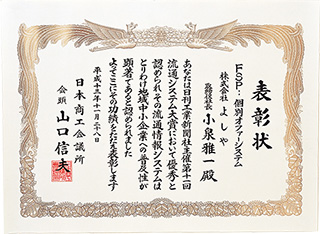 表彰状
FSP:個別オファーシステム
株式会社よしや
小泉雅一殿
あなたは日刊工業新聞社主催第十一回
流通システム大賞において優秀と
認められその流通情報システムは
とりわけ地域中小企業への普及性が
顕著であると認められました
よってここにその功績をたたえ表彰します
平成十五年十一月二十八日
日本商工会議所
会頭 山口信夫